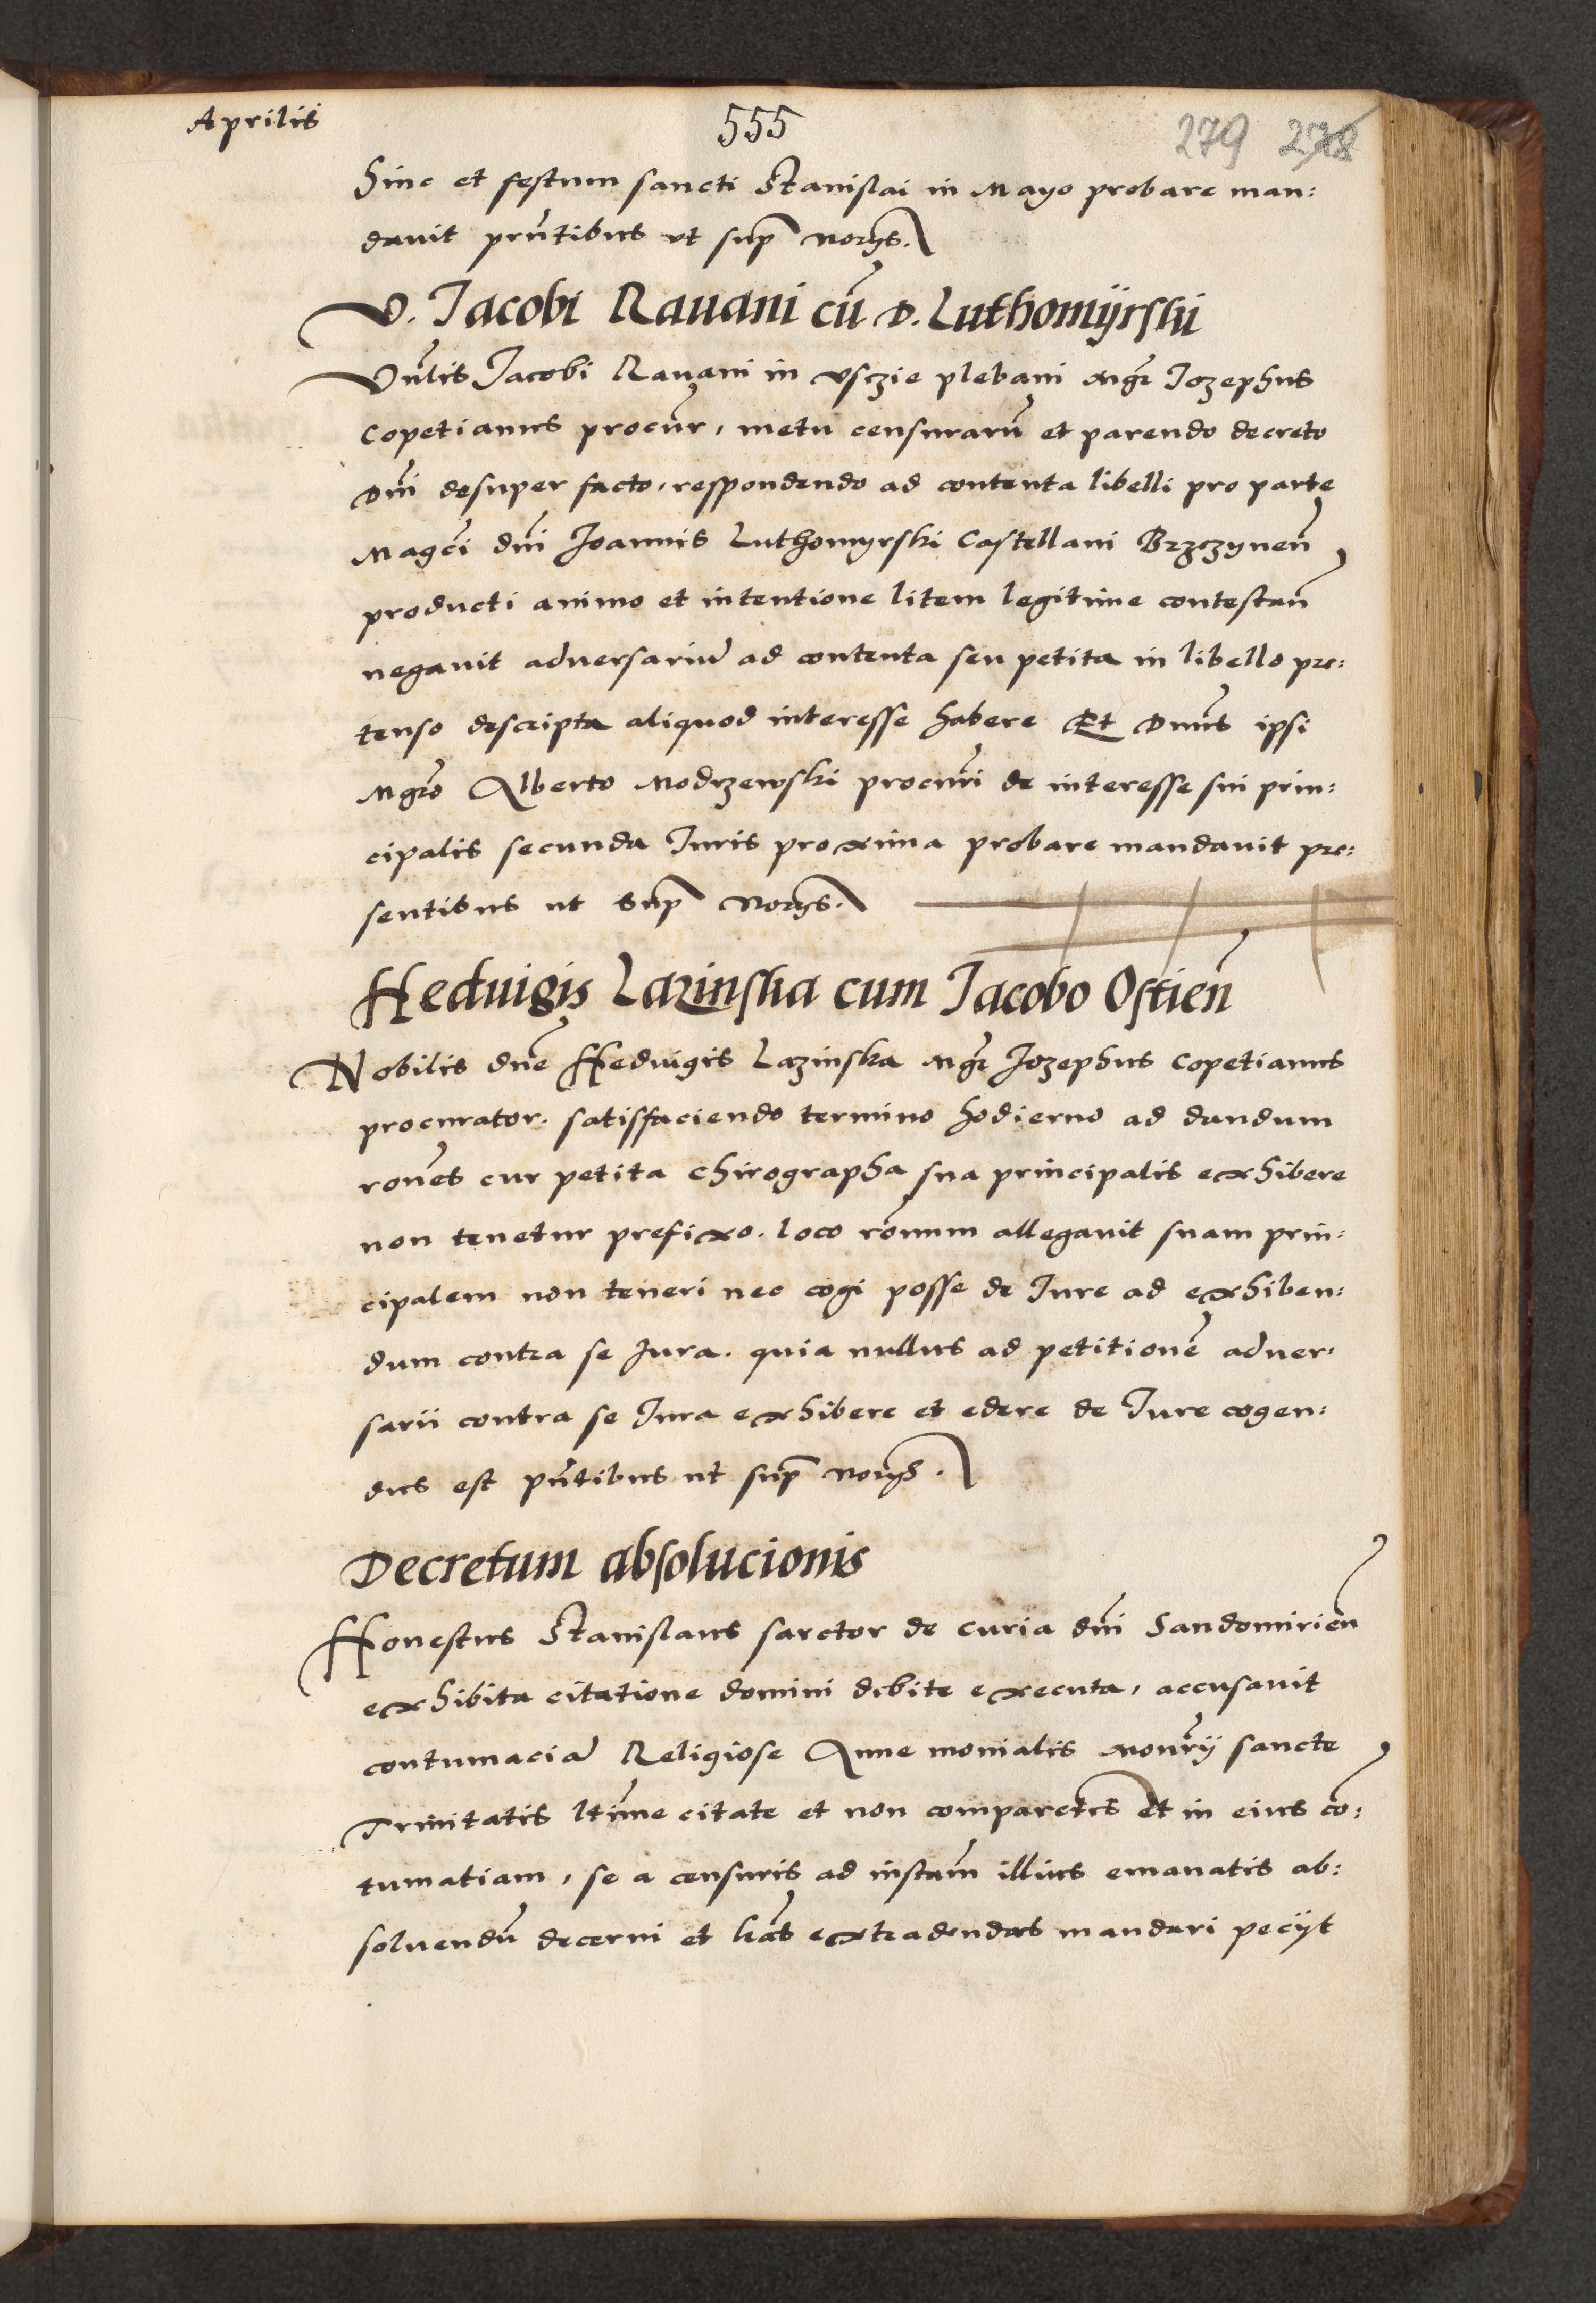 Aprilis
555
279 278
hinc et festum sancti Stanislai in Mayo probare man:
davit prn̄tibus vt sup Norijs.
V. Jacobi Rauani cū D. Luthomÿrski
Vn̄lis Jacobi Rauani in vsczie plebani Mgr̄ Jozephus
Copetianus procur̄, metu censurarū et parendo decreto
Dn̄i desuper facto, respondendo ad contenta libelli pro parte
Magci dn̄i Joannis Luthomyrski Castellani Brzezynen̄
producti animo et intentione litem legitime contestan̄
negauit adversariū ad contenta seu petita in libello pre:
tenso descripta aliquod interesse habere Et Dnus ipsi
Mgrō Alberto Modrzewski procuri de interesse sui prin:
cipalis secunda Juris proxima probare mandauit pre:
sentibus ut sup Norijs.
Heduigis Lazinska cum Jacobo Ostien̄
Nobilis dn̄e Heduigis Lazinska Mgr̄ Jozephus Copetianus
procurator. satisfaciendo termino hodierno ad dandum
ron̄es cur petita chirographa sua principalis exhibere
non tenetur prefixo. loco rōnum allegauit suam prin:
cipalem non teneri nec cogi posse de Jure ad exhiben:
dum contra se Jura. quia nullus ad petitionē adver:
sarii contra se Jura exhibere et edere de Jure cogen:
dus est pn̄tibus ut sup Norijs.
Decretum absolucionis
Honestus Stanislaus sarctor de curia dn̄i Sandomirien̄
exhibita citatione domini debite executa, accusauit
contumaciā Religiose Anne monialis Monr̄ij sancte
Trinitatis ltīme citate et non comparetis Et in eius cō:
tumatiam, se a censuris ad instam̄ illius emanatis ab:
soluendū decerni et lrās extradendas mandari pecijt